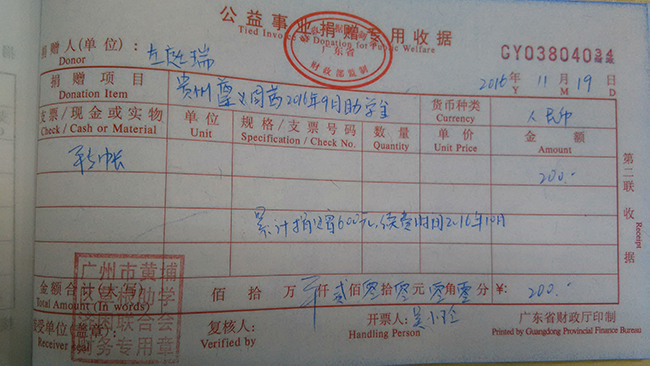 公益事业捐赠专用收据
Tied Invoice of Donation for Public Welfare
财政部监制
GY03804034
捐赠人(单位): 瑞
Donor
2016年 11月 19日
Y M D
捐赠项目 贵州遵义 2016年9月助学金
Donation Item
货币种类 人民币
Currency
支票/现金或实物 单位 规格/支票号码 数量 单价 金额
Check / Cash or Material Unit Specification / Check No. Quantity Unit Price Amount
转帐 200.-
累计捐 600元,续 时间2016年10月
第二联 收据
金额合计(大写) 佰 拾 万 仟 贰佰 零拾 零元 零角 零分 ¥: 200.-
Total Amount (In words)
接受单位(盖章): 复核人: 开票人: 吴小玲 广东省财政厅印制
Receiver seal Verified by Handling Person Printed by Guangdong Provincial Finance Bureau
广州市黄埔
联合会
财务专用章